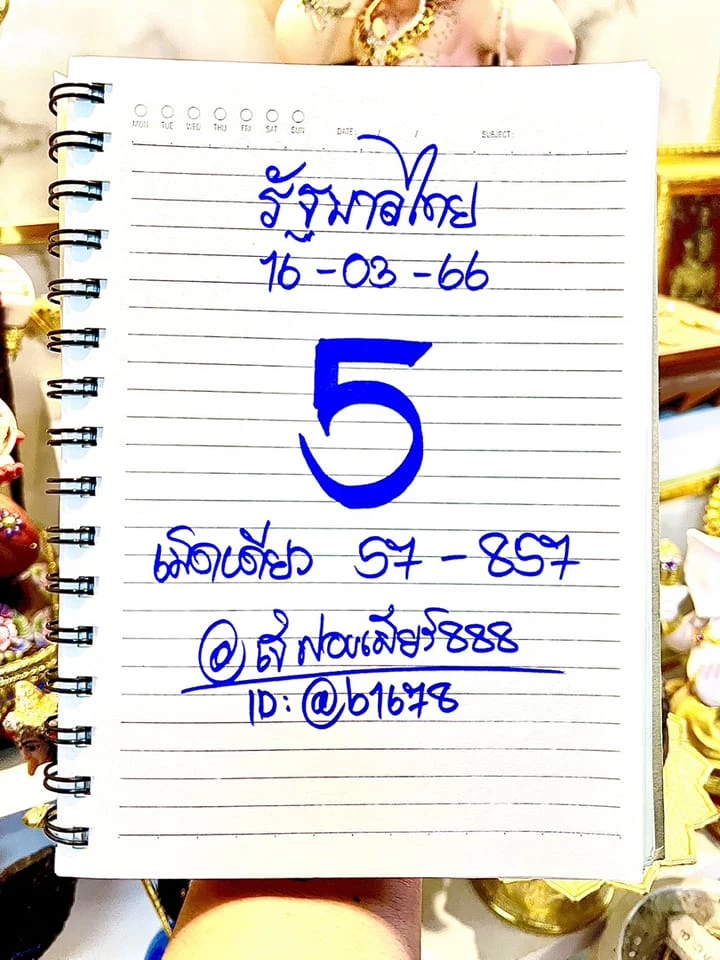 MON TUE WED THU FRI SAT SUN DATE: / / SUBJECT:
รัฐบาลไทย
16-03-66
5
เม็ดเดียว 57-857
@เจ๊ฟองเบียร์888
ID: @b1678